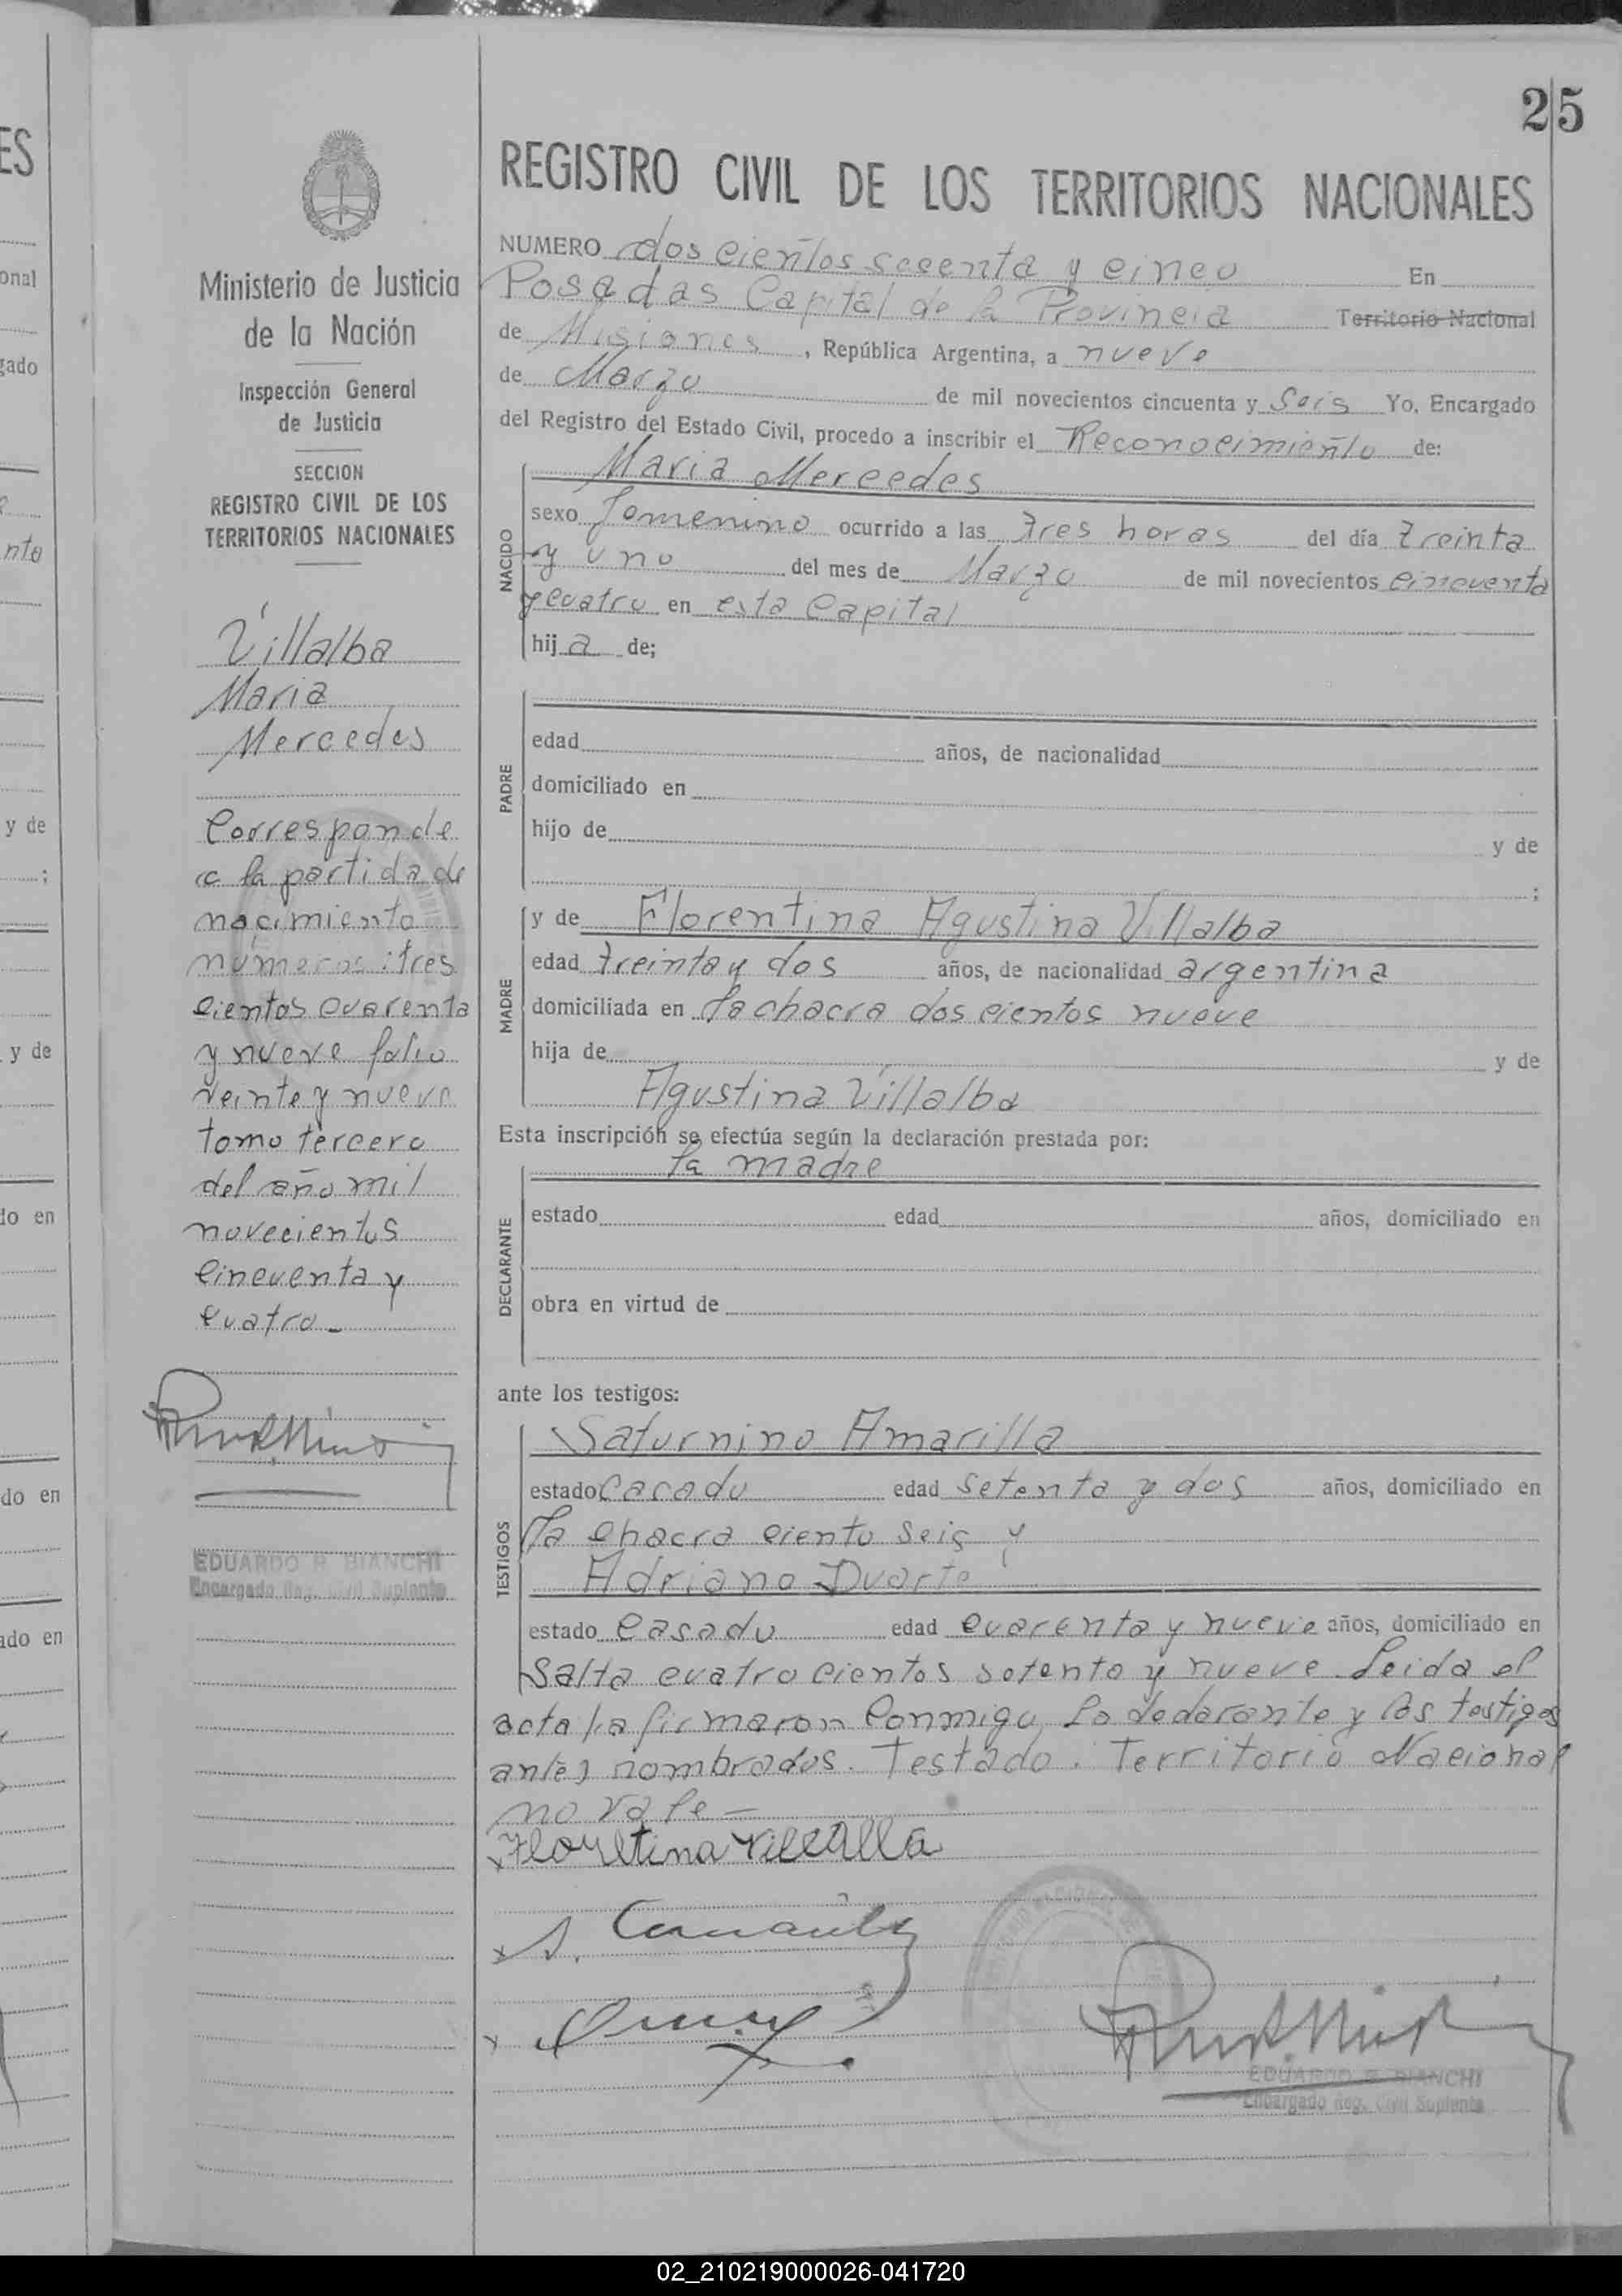 25
REGISTRO CIVIL DE LOS TERRITORIOS NACIONALES
NUMERO doscientos sesenta y cinco En
Posadas Capital de la Provincia Territorio Nacional
de Misiones, República Argentina, a nueve
de Marzo de mil novecientos cincuenta y Seis Yo, Encargado
del Registro del Estado Civil, procedo a inscribir el Reconocimiento de:
NACIDO
Maria Mercedes
sexo femenino ocurrido a las tres horas del día treinta
y uno del mes de Marzo de mil novecientos cincuenta
y cuatro en esta Capital
hija de;
PADRE
edad años, de nacionalidad
domiciliado en
hijo de y de
;
MADRE
y de Florentina Agustina Villalba
edad treinta y dos años, de nacionalidad argentina
domiciliada en la chacra doscientos nueve
hija de y de
Agustina Villalba
Esta inscripción se efectúa según la declaración prestada por:
DECLARANTE
la madre
estado edad años, domiciliado en
obra en virtud de
ante los testigos:
TESTIGOS
Saturnino Amarilla
estado Casado edad setenta y dos años, domiciliado en
la chacra ciento seis y
Adriano Duarte
estado casado edad cuarenta y nueve años, domiciliado en
Salta cuatrocientos setenta y nueve. Leida el
acta la firmaron conmigo, la declarante y los testigos
antes nombrados. Testado: Territorio Nacional
no vale—
Florentina Villalba
EDUARDO R. BIANCHI
Encargado Reg. Civil Suplente
Ministerio de Justicia
de la Nación
Inspección General
de Justicia
SECCION
REGISTRO CIVIL DE LOS
TERRITORIOS NACIONALES
Villalba
Maria
Mercedes
Corresponde
a la partida de
nacimiento
número: tres
cientos cuarenta
y nueve folio
veinte y nueve
tomo tercero
del año mil
novecientos
cincuenta y
cuatro—
EDUARDO R. BIANCHI
Encargado Reg. Civil Suplente
ES
onal
gado
nta
y de
;
y de
do en
do en
ado en
02_210219000026-041720